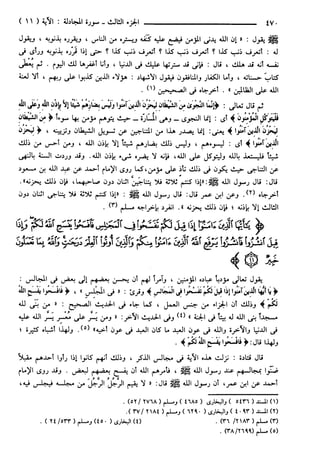 ٤٧٠ الجزء الثالث - سورة المجادلة : الآية ( ١١ )
ﷺ يقول : « إن الله يدني المؤمن فيضع عليه كنفه ويستره من الناس ، ويقرره بذنوبه ، ويقول
له : أتعرف ذنب كذا ؟ أتعرف ذنب كذا ؟ أتعرف ذنب كذا ؟ حتى إذا قرّره بذنوبه ورأى في
نفسه أنه قد هلك ، قال : فإني قد سترتها عليك في الدنيا ، وأنا أغفرها لك اليوم . ثم يُعْطَى
كتابَ حسناته ، وأما الكفار والمنافقون فيقول الأشهاد : هؤلاء الذين كذبوا على ربهم ، ألا لعنة
الله على الظالمين » . أخرجاه في الصحيحين (١) .
ثم قال تعالى : ﴿ إِنَّمَا النَّجْوَىٰ مِنَ الشَّيْطَانِ لِيَحْزُنَ الَّذِينَ آمَنُوا وَلَيْسَ بِضَارِّهِمْ شَيْئًا إِلَّا بِإِذْنِ اللَّهِ وَعَلَى اللَّهِ
فَلْيَتَوَكَّلِ الْمُؤْمِنُونَ ﴾ أي : إنما النجوى – وهي المُسَارّة – حيث يتوهم مؤمن بها سوءاً ﴿ مِنَ الشَّيْطَانِ
لِيَحْزُنَ الَّذِينَ آمَنُوا ﴾ يعني : إنما يصدر هذا من المتناجين عن تسويل الشيطان وتزيينه ، ﴿ لِيَحْزُنَ
الَّذِينَ آمَنُوا ﴾ أي : ليسوءهم ، وليس ذلك بضارهم شيئاً إلا بإذن الله ، ومن أحس من ذلك
شيئاً فليستعذ بالله وليتوكل على الله، فإنه لا يضره شيء بإذن الله. وقد وردت السنة بالنهى
عن التناجي حيث يكون في ذلك تأذ على مؤمن،كما روى الإمام أحمد عن عبد الله بن مسعود
قال: قال رسول الله ﷺ:«إذا كنتم ثلاثة فلا يتناجيَنّ اثنان دون صاحبهما، فإن ذلك يحزنه».
أخرجاه (٢). وعن ابن عمر قال: قال رسول الله ﷺ : «إذا كنتم ثلاثة فلا يتناجى اثنان دون
الثالث إلا بإذنه ؛ فإن ذلك يحزنه ». انفرد بإخراجه مسلم (٣) .
﴿ يَا أَيُّهَا الَّذِينَ آمَنُوا إِذَا قِيلَ لَكُمْ تَفَسَّحُوا فِي الْمَجَالِسِ فَافْسَحُوا يَفْسَحِ اللَّهُ لَكُمْ وَإِذَا قِيلَ
انشُزُوا فَانشُزُوا يَرْفَعِ اللَّهُ الَّذِينَ آمَنُوا مِنكُمْ وَالَّذِينَ أُوتُوا الْعِلْمَ دَرَجَاتٍ وَاللَّهُ بِمَا تَعْمَلُونَ
خَبِيرٌ ﴾
يقول تعالى مؤدباً عباده المؤمنين ، وآمراً لهم أن يحسن بعضهم إلى بعض في المجالس :
﴿ يَا أَيُّهَا الَّذِينَ آمَنُوا إِذَا قِيلَ لَكُمْ تَفَسَّحُوا فِي الْمَجَالِسِ ﴾ ، وقرئ : « في المجلس » ، ﴿ فَافْسَحُوا يَفْسَحِ اللَّهُ
لَكُمْ ﴾ وذلك أن الجزاء من جنس العمل ، كما جاء في الحديث الصحيح : « من بَنَى لله
مسجداً بنى الله له بيتاً في الجنة » (٤) وفي الحديث الآخر: « ومن يَسَّر على مُعْسر يَسَّر الله عليه
في الدنيا والآخرة والله في عون العبد ما كان العبد في عون أخيه» (٥). ولهذا أشباه كثيرة ؛
ولهذا قال: ﴿ فَافْسَحُوا يَفْسَحِ اللَّهُ لَكُمْ ﴾ .
قال قتادة : نزلت هذه الآية في مجالس الذكر ، وذلك أنهم كانوا إذا رأوا أحدهم مقبلاً
ضنّوا بمجالسهم عند رسول الله ﷺ ، فأمرهم الله أن يفسح بعضهم لبعض . وقد روى الإمام
أحمد عن ابن عمر، أن رسول الله ﷺ قال: « لا يقيم الرجلُ الرجلَ من مجلسه فيجلس فيه،
(١) المسند ( ٥٤٣٦ ) والبخارى ( ٤٦٨٥ ) ومسلم ( ٢٧٦٨ / ٥٢ ) .
(٢) المسند ( ٤٠٩٣ ) والبخارى ( ٦٢٩٠ ) ومسلم ( ٢١٨٤ / ٣٧ ) .
(٣) مسلم ( ٢١٨٣ / ٣٦ ) . (٤) البخارى ( ٤٥٠ ) ومسلم ( ٥٣٣ / ٢٤ ) .
(٥) مسلم (٢٦٩٩ / ٣٨) .